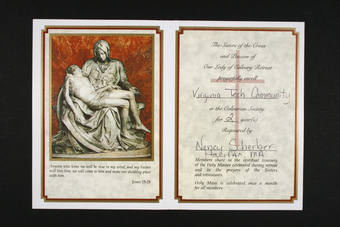 Anyone who loves me will be true to my word, and my Father
will love him; we will come to him and make our dwelling place
with him.
John 14:23
The Sisters of the Cross
and Passion of
Our Lady of Calvary Retreat
prayerfully enroll
Virginia Tech Community
in the Calvarian Society
for 2 year(s)
Requested by
Nancy Scherber
Halifax MA
Members share in the spiritual treasury
of the Holy Masses celebrated during retreat
and in the prayers of the Sisters
and retreatants.
Holy Mass is celebrated once a month
for all members.